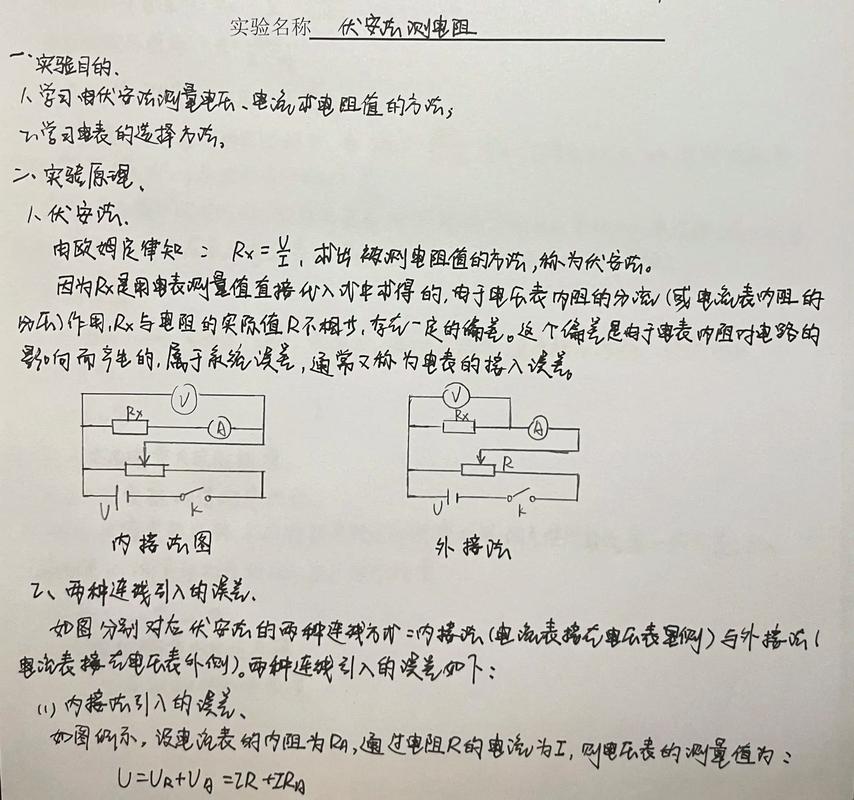 实验名称 伏安法测电阻
一、实验目的、
1、学习由伏安法测量电压、电流求电阻值的方法;
2、学习电表的选择方法。
二、实验原理、
1、伏安法、
由欧姆定律知: Rx=U/I, 求出被测电阻值的方法,称为伏安法。
因为Rx是用电表测量值直接代入式中求得的,由于电压表内阻的分流(或电流表内阻的
分压)作用,Rx与电阻的实际值R不相等,存在一定的偏差。这个偏差是由于电表内阻对电路的
影响而产生的,属于系统误差,通常又称为电表的接入误差。
V
Rx
A
U
K
内接法图
V
Rx
A
R
U
K
外接法
2、两种连线引入的误差、
如图分别对应伏安法的两种连线方式:内接法(电流表接在电压表里侧)与外接法(
电流表接在电压表外侧)。两种连线引入的误差如下:
(1) 内接法引入的误差、
如图所示,设电流表的内阻为RA,通过电阻R的电流为I,则电压表的测量值为:
U=UR+UA=IR+IRA